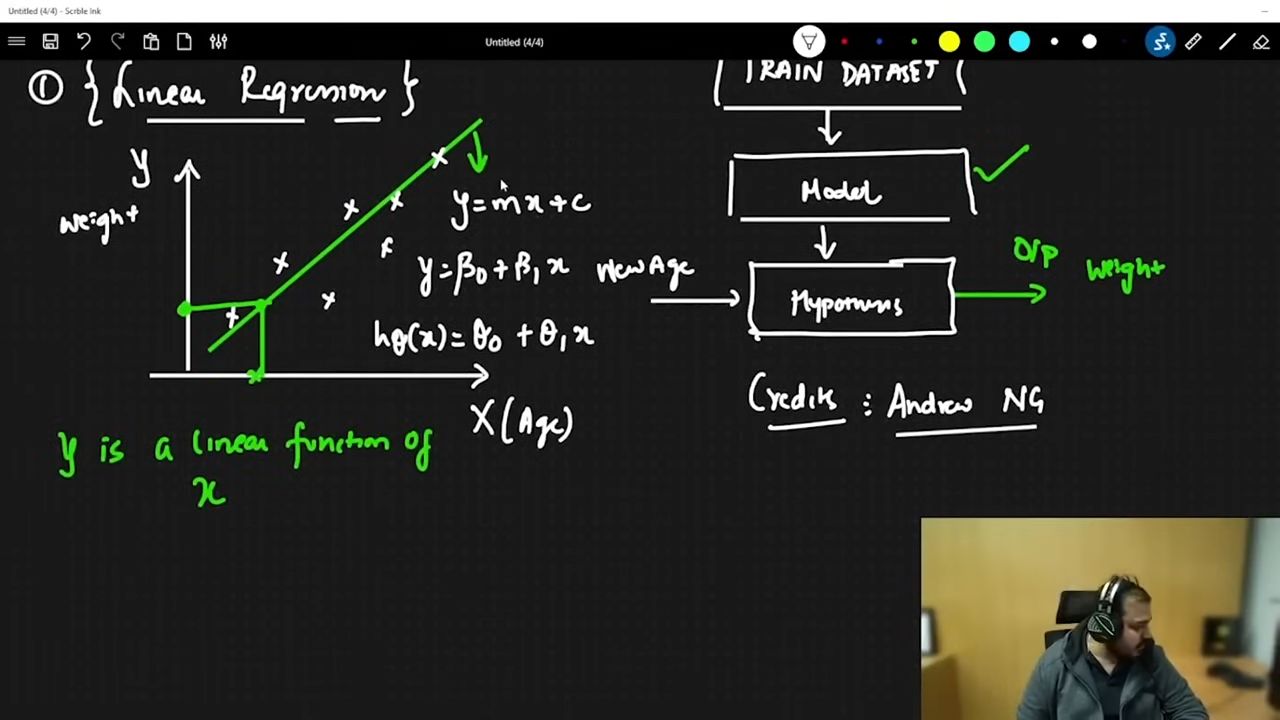 Untitled (4/4) - Scrble Ink
Untitled (4/4)
① {Linear Regression}
Y
weight
y=mx+c
y=β0+β1x
hθ(x)=θ0+θ1x
X(Age)
y is a linear function of
x
TRAIN DATASET
Model
New Age
Hypothesis
O/P
weight
Credits : Andrew NG